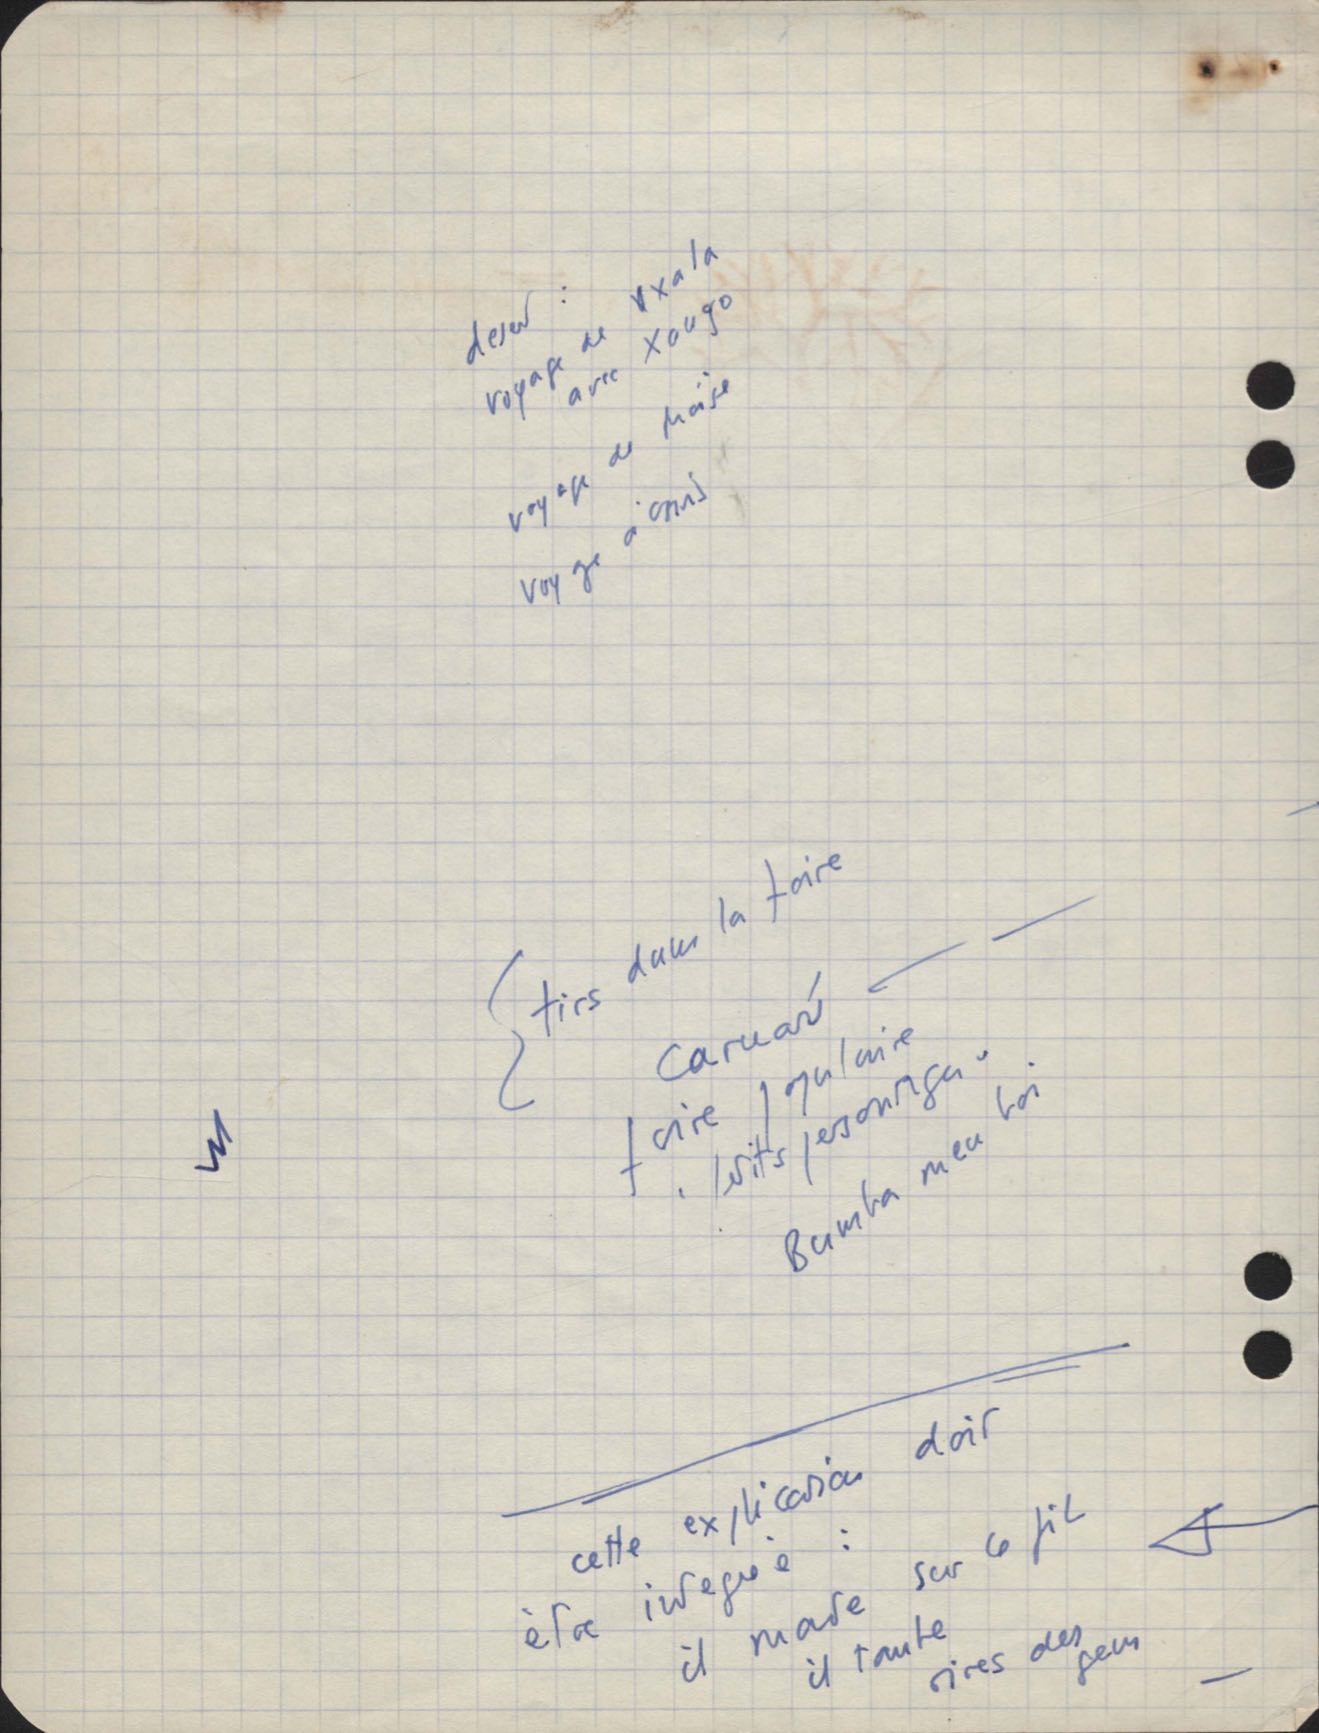 desert :
voyage de Oxala
avec Xango
voyage de Moise
voyage
tirs dans la foire
Caruarú
foire populaire
petits personnga.
Bumba meu boi
cette explication doit
être integré :
il monte sur le fil
il tombe
rires des
gens